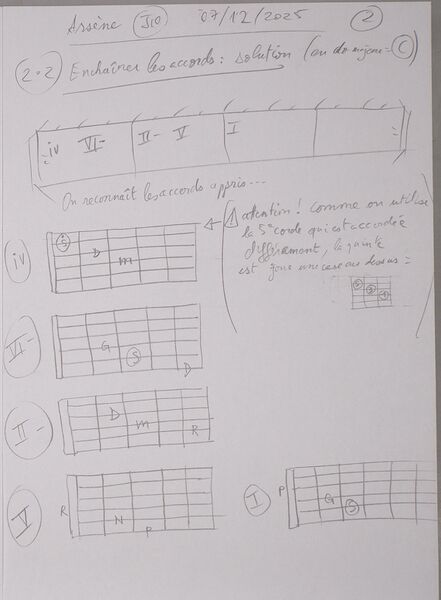 Arsène J10 07/12/2025 2
2.2 Enchaîner les accords : solution (en do majeur = C)
iv VI- II- V I
On reconnaît les accords appris...
attention ! Comme on utilise
la 5e corde qui est accordée
différemment, la quinte
est joue une case au dessus =
iv
D
m
VI-
G
S
D
II-
D
m
R
V
R
N
P
I
P
G
S